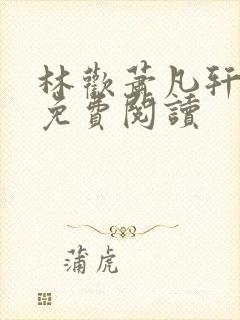 林歡蕭凡軒
免費閱讀
蒲虎